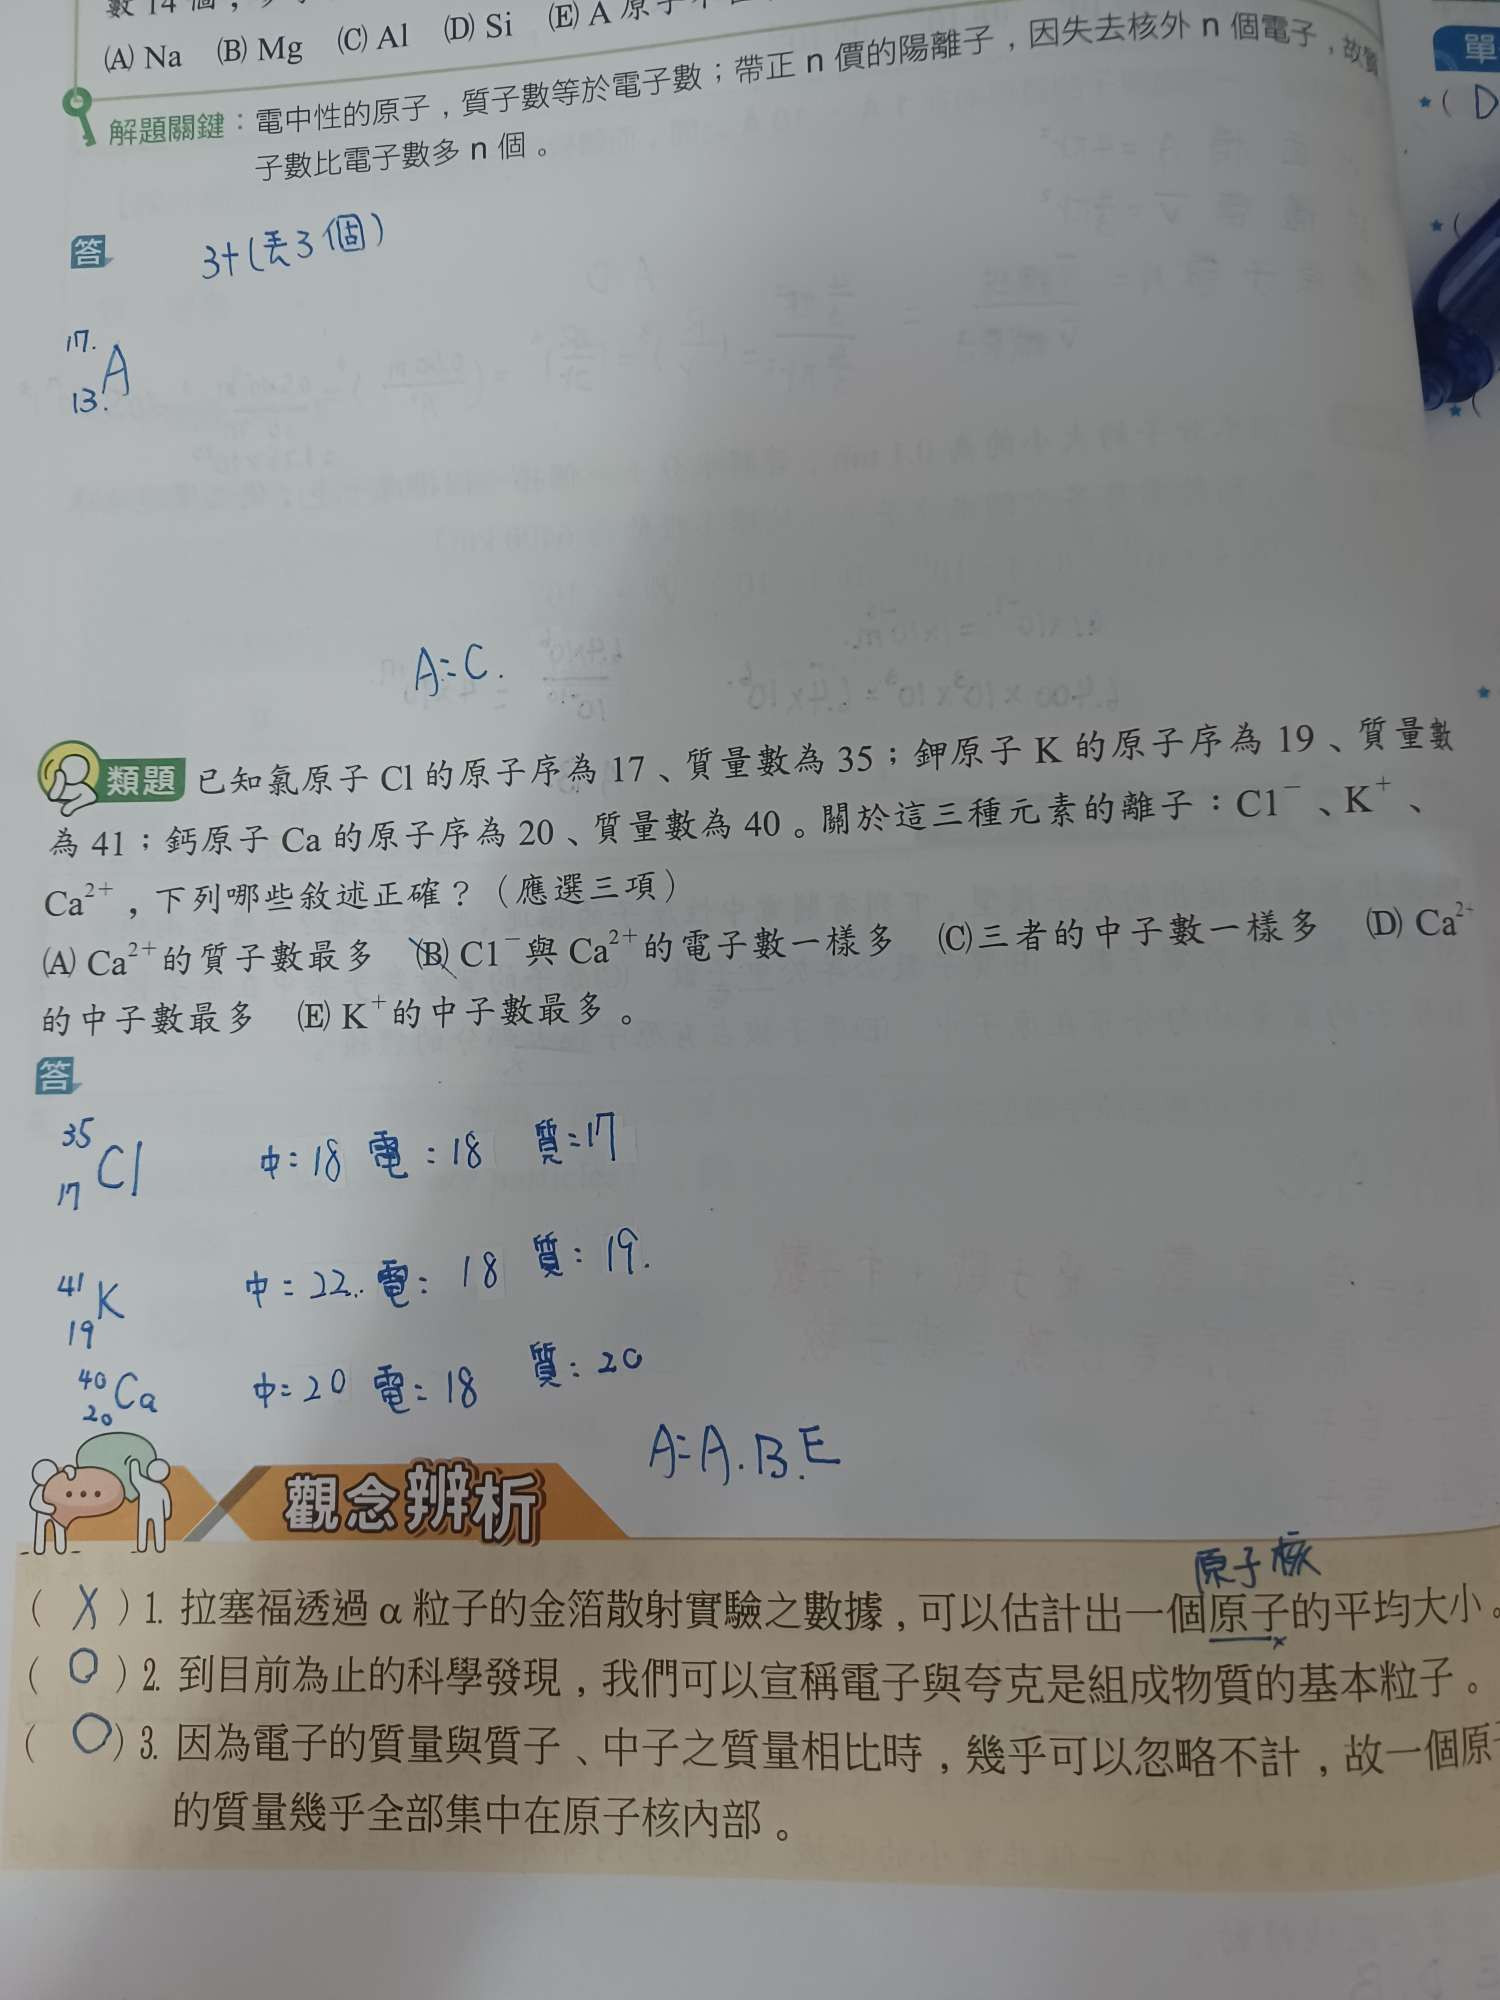 數 14 個，
(A) Na (B) Mg (C) Al (D) Si (E) A 原子
解題關鍵：電中性的原子，質子數等於電子數；帶正 n 價的陽離子，因失去核外 n 個電子，故質
子數比電子數多 n 個。
單
( D
答
3+(丟3個)
17.
A
13.
A=C.
類題 已知氯原子 Cl 的原子序為 17、質量數為 35；鉀原子 K 的原子序為 19、質量數
為 41；鈣原子 Ca 的原子序為 20、質量數為 40。關於這三種元素的離子：Cl⁻、K⁺、
Ca²⁺，下列哪些敘述正確？（應選三項）
(A) Ca²⁺的質子數最多 (B) Cl⁻與 Ca²⁺的電子數一樣多 (C)三者的中子數一樣多 (D) Ca²⁺
的中子數最多 (E) K⁺的中子數最多。
答
35 17 Cl 中=18 電：18 質=17
41 19 K 中=22. 電：18 質：19.
40 20 Ca 中=20 電=18 質：20
A=A.B.E
觀念辨析
原子核
( X ) 1. 拉塞福透過 α 粒子的金箔散射實驗之數據，可以估計出一個原子的平均大小。
( O ) 2. 到目前為止的科學發現，我們可以宣稱電子與夸克是組成物質的基本粒子。
( O ) 3. 因為電子的質量與質子、中子之質量相比時，幾乎可以忽略不計，故一個原子
的質量幾乎全部集中在原子核內部。